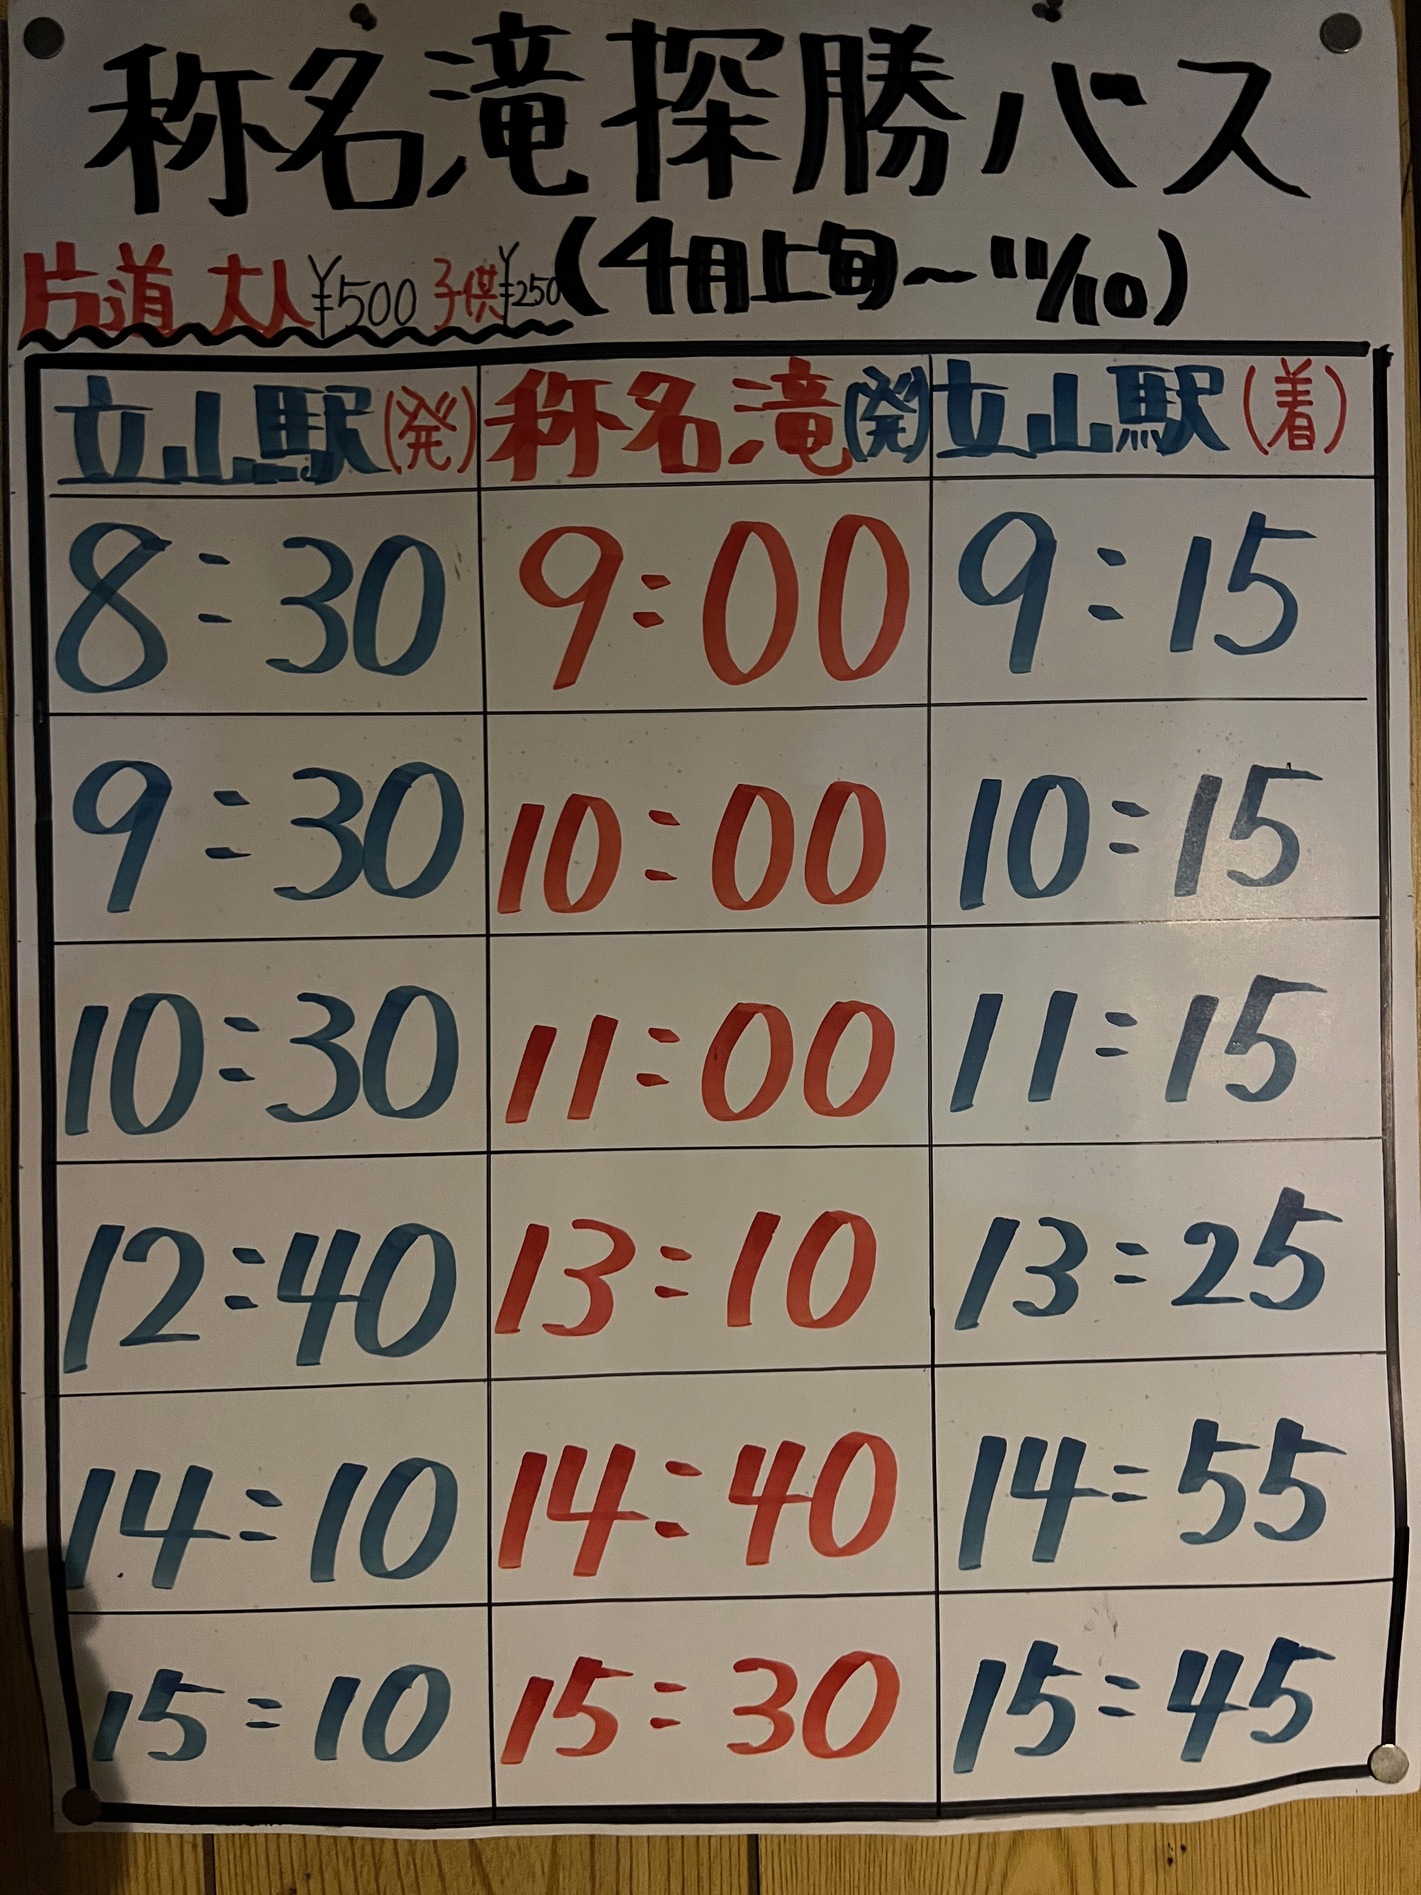 称名滝探勝バス
片道 大人¥500 子供¥250 (4月上旬〜11/10)
立山駅(発) 称名滝(発) 立山駅(着)
8:30 9:00 9:15
9:30 10:00 10:15
10:30 11:00 11:15
12:40 13:10 13:25
14:10 14:40 14:55
15:10 15:30 15:45